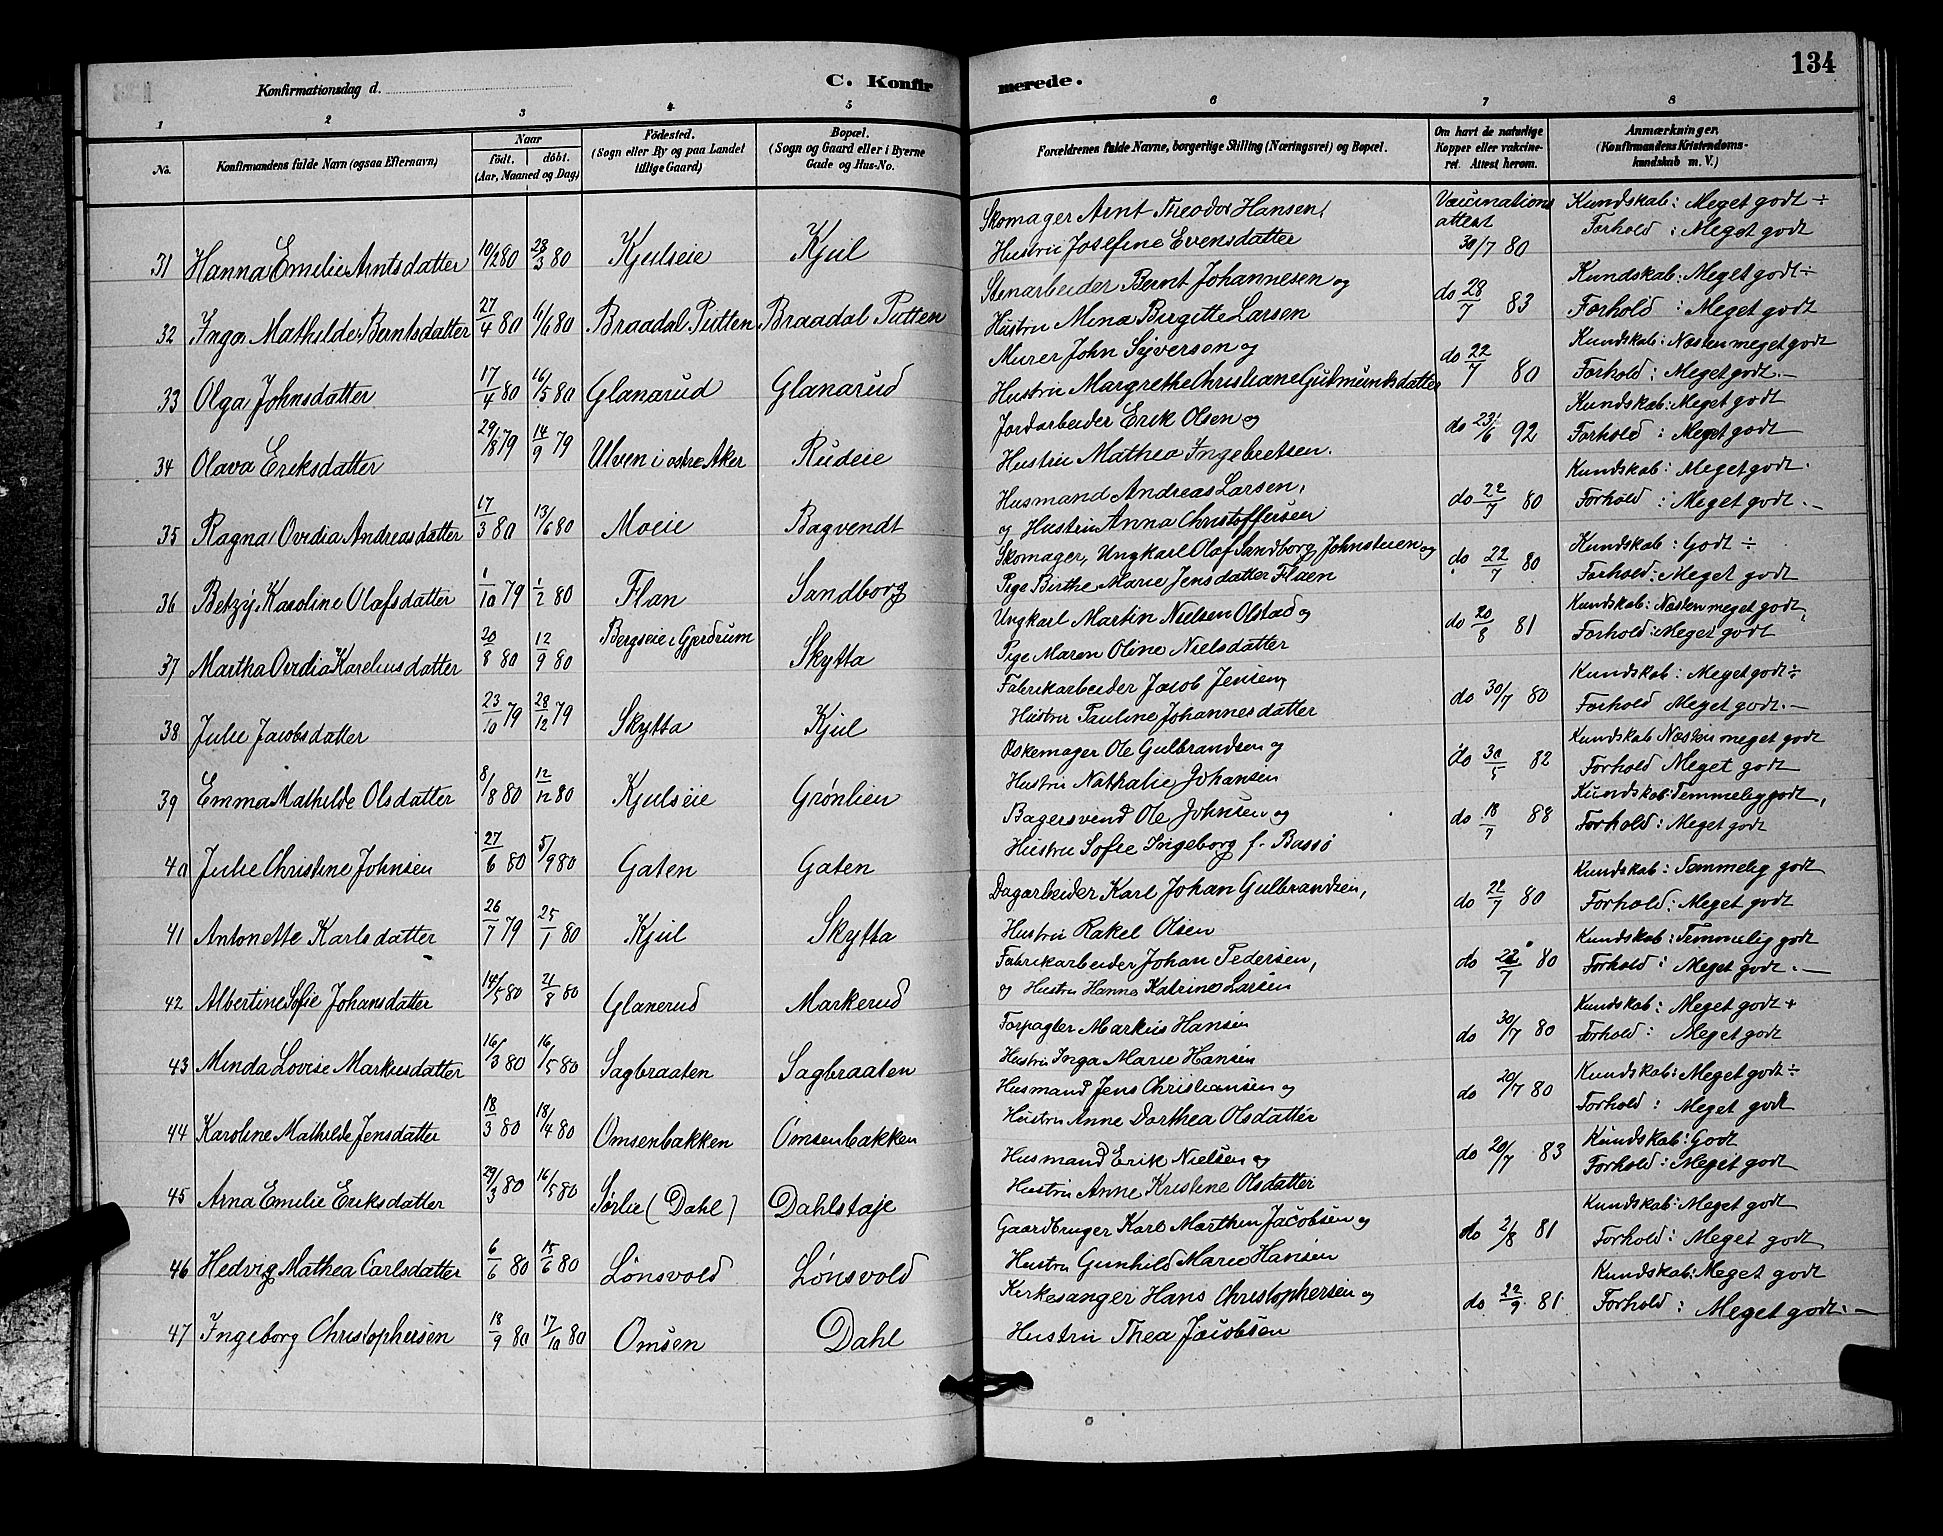 Konfirmationsdag d.
C. Konfirmerede.
134
1 2 3 4 5 6 7 8
No. Konfirmandens fulde Navn (ogsaa Efternavn) Naar født. døbt. (Aar, Maaned og Dag) Födested. (Sogn eller By og paa Landet tillige Gaard) Bopæl. (Sogn og Gaard eller i Byerne Gade og Hus-No. Forældrenes fulde Navne, borgerlige Stilling (Næringsvei) og Bopæl. Om havt de naturlige Kopper eller vakcineret. Attest herom. Anmærkninger. (Konfirmandens Kristendomskundskab m. V.)
Skomager Arnt Theodor Hansen, Vaccinations attest Kundskab: Meget godt ÷
31 Hanna Emilie Arntsdatter 10/2 80 28/3 80 Kjulseie Kjul Hustru Josefine Evensdatter 30/7 80 Forhold: Meget godt
Stenarbeider Bernt Johannesen og Kundskab: Meget godt ÷
32 Inga Mathilde Berntsdatter 27/4 80 6/6 80 Braadal Putten Braadal Putten Hustru Mina Birgitte Larsen do 28/7 83 Forhold: Meget godt
Murer John Syversen og Kundskab: Næsten meget godt
33 Olga Johnsdatter 17/4 80 16/5 80 Glanarud Glanarud Hustru Margrethe Christiane Gudmundsdatter do 22/7 80 Forhold: Meget godt. —
Jordarbeider Erik Olsen og Kundskab: Meget godt
34 Olava Eriksdatter 29/8 79 14/9 79 Ulven i østre Aker Rudeie Hustru Mathea Ingebretsen. do 23/6 92 Forhold: Meget godt
Husmand Andreas Larsen, Kundskab: Meget godt.
35 Ragna Ovidia Andreasdatter 17/3 80 13/6 80 Moeie Bagvendt og Hustru Anna Christoffersen do 22/7 80 Forhold: Meget godt. —
Skomager, Ungkarl Olaf Sandborg Johnstuen og Kundskab: Godt ÷
36 Betzy Karoline Olafsdatter 1/10 79 1/2 80 Flan Sandborg Pige Birthe Marie Jensdatter Flaen do 22/7 80 Forhold: Meget godt
Ungkarl Martin Nielsen Olstad og Kundskab: Næsten meget godt,
37 Martha Ovidia Kareliusdatter 20/8 80 12/9 80 Bergseie i Gjerdrum Skytta Pige Maren Oline Nielsdatter do 20/8 81 Forhold: Meget godt
Fabrikarbeider Jacob Jensen, Kundskab: Meget godt ÷
38 Julie Jacobsdatter 23/10 79 28/12 79 Skytta Kjul Hustru Pauline Johannesdatter do 30/7 80 Forhold Meget godt. —
Øskemager Ole Gulbrandsen og Kundskab Næsten meget godt
39 Emma Mathilde Olsdatter 8/8 80 12/12 80 Kjulseie Grønlien Hustru Nathalie Johansen do 30/5 82 Forhold Meget godt
Bagersvend Ole Johnsen og Kundskab: Temmelig godt,
40 Julie Christine Johnsen 27/6 80 5/9 80 Gaten Gaten Hustru Sofie Ingeborg f. Bassø do 18/7 88 Forhold: Meget godt
Dagarbeider Karl Johan Gulbrandsen, Kundskab: Temmelig godt
41 Antonette Karlsdatter 26/7 79 25/1 80 Kjul Skytta Hustru Rakel Olsen do 22/7 80 Forhold: Meget godt
Fabrikarbeider Johan Pedersen, Kundskab: Temmelig godt
42 Albertine Sofie Johansdatter 14/5 80 21/8 80 Glanerud Markerud og Hustru Hanna Katrine Larsen do 22/7 80 Forhold: Meget godt. —
Forpagter Markus Hansen Kundskab: Meget godt +
43 Minda Lovise Markusdatter 16/3 80 16/5 80 Sagbraaten Sagbraaten Hustru Inga Marie Hansen do 30/7 80 Forhold: Meget godt
Husmand Jens Christiansen og Kundskab: Meget godt ÷
44 Karoline Mathilde Jensdatter 18/3 80 18/4 80 Omsenbakken Omsenbakken Hustru Anne Dorthea Olsdatter do 20/7 80 Forhold: Meget godt
Husmand Erik Nielsen og Kundskab: Godt
45 Arna Emilie Eriksdatter 29/3 80 16/5 80 Sørlie (Dahl) Dahlstaje Hustru Anne Kristine Olsdatter do 20/7 83 Forhold: Meget godt
Gaardbruger Karl Marthin Jacobsen og Kundskab: Meget godt
46 Hedvig Mathea Carlsdatter 6/6 80 15/6 80 Lønsvold Lønsvold Hustru Gunhild Marie Hansen do 2/8 81 Forhold: Meget godt
Kirkesanger Hans Christophersen og Kundskab: Meget godt
47 Ingeborg Christophersen 18/9 80 17/10 80 Omsen Dahl Hustru Thea Jacobsen do 22/9 81. Forhold: Meget godt. —